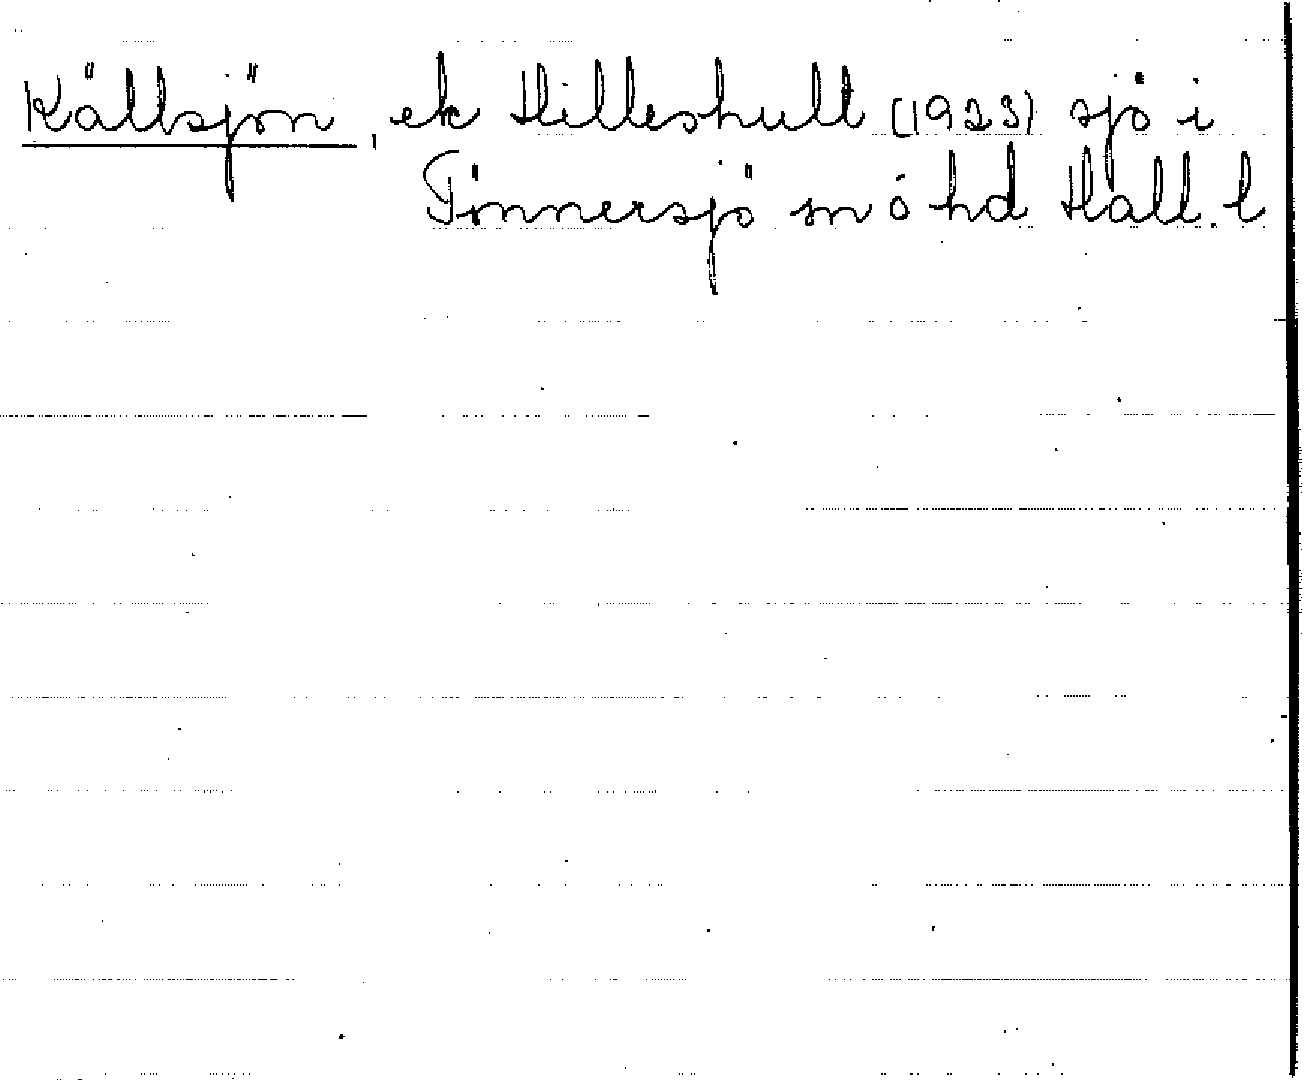 Källsjön, ek Hilleshult (1923) sjö i
Tönnersjö sn o hd Hall. l